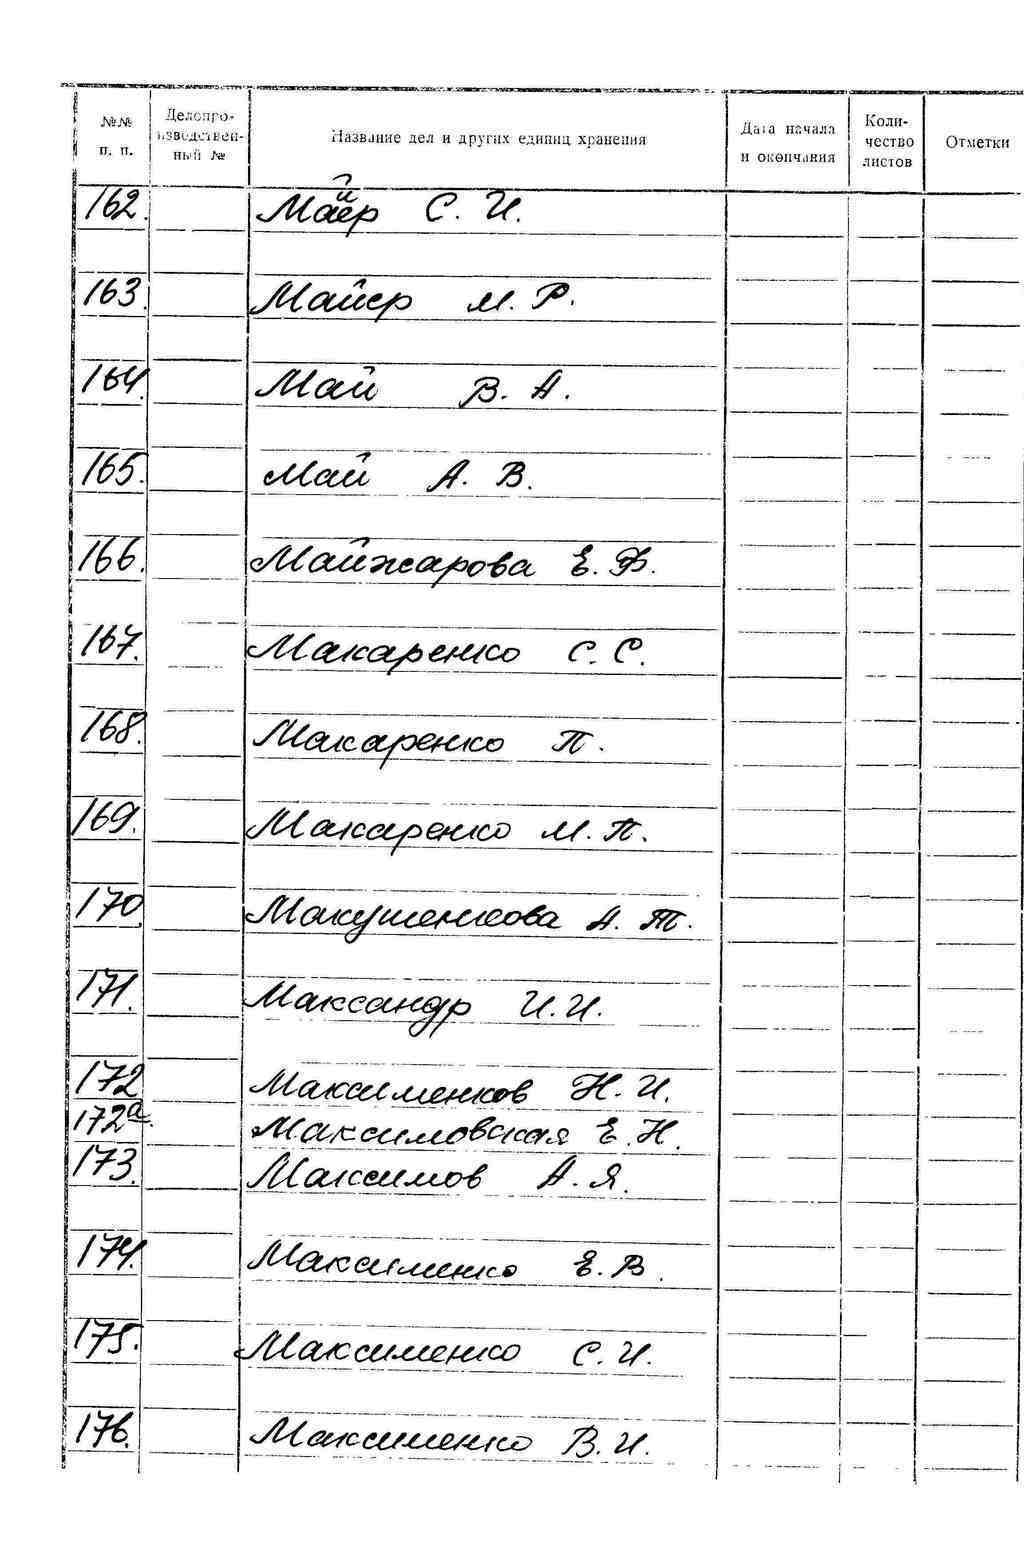 №№ п. п. Делопроизводственный № Название дел и других единиц хранения Дата начала и окончания Количество листов Отметки
162. Майер С. И.
163. Майер М. Р.
164. Май В. А.
165. Май А. В.
166. Майжарова Е. Ф.
167. Макаренко С. С.
168. Макаренко П.
169. Макаренко М. П.
170. Макушенкова А. Т.
171. Максандр И. И.
172 Максименков Н. И.
172а. Максимовская Е. Н.
173. Максимов А. Я.
174. Максименко Е. В.
175. Максименко С. И.
176. Максименко В. И.